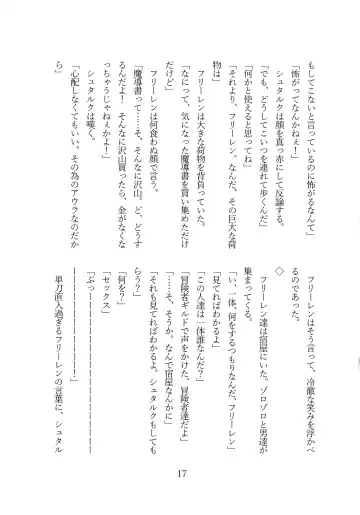 もしてこないと言っているのに怖がるなんて」
「怖がってなんかねぇ！」
シュタルクは顔を真っ赤にして反論する。
「でも、どうしてこいつを連れて歩くんだ」
「何かと使えると思ってね」
「それより、フリーレン。なんだ、その巨大な荷
物は」
フリーレンは大きな荷物を背負っていた。
「なにって、気になった魔導書を買い集めただけ
だけど」
フリーレンは何食わぬ顔で言う。
「魔導書って……そ、そんなに沢山。ど、どうす
るんだよ！　そんなに沢山買ったら、金がなくな
っちゃうじゃねぇかよ！」
シュタルクは嘆く。
「心配しなくてもいい。その為のアウラなのだか
ら」
フリーレンはそう言って、冷徹な笑みを浮かべ
るのであった。
◇
フリーレン達は宿屋にいた。ゾロゾロと男達が
集まってくる。
「い、一体、何をするつもりなんだ、フリーレン」
「見てればわかるよ」
「この人達は一体誰なんだ？」
「冒険者ギルドで声をかけた、冒険者達だよ」
「……そ、そうか。なんで宿屋なんかに」
「それも見てればわかるよ。シュタルクもしても
らう？」
「何を？」
「セックス」
「ぶっーーーーーーーーーーーーーーーー
ーーーーーーーー！」
単刀直入過ぎるフリーレンの言葉に、シュタル
17